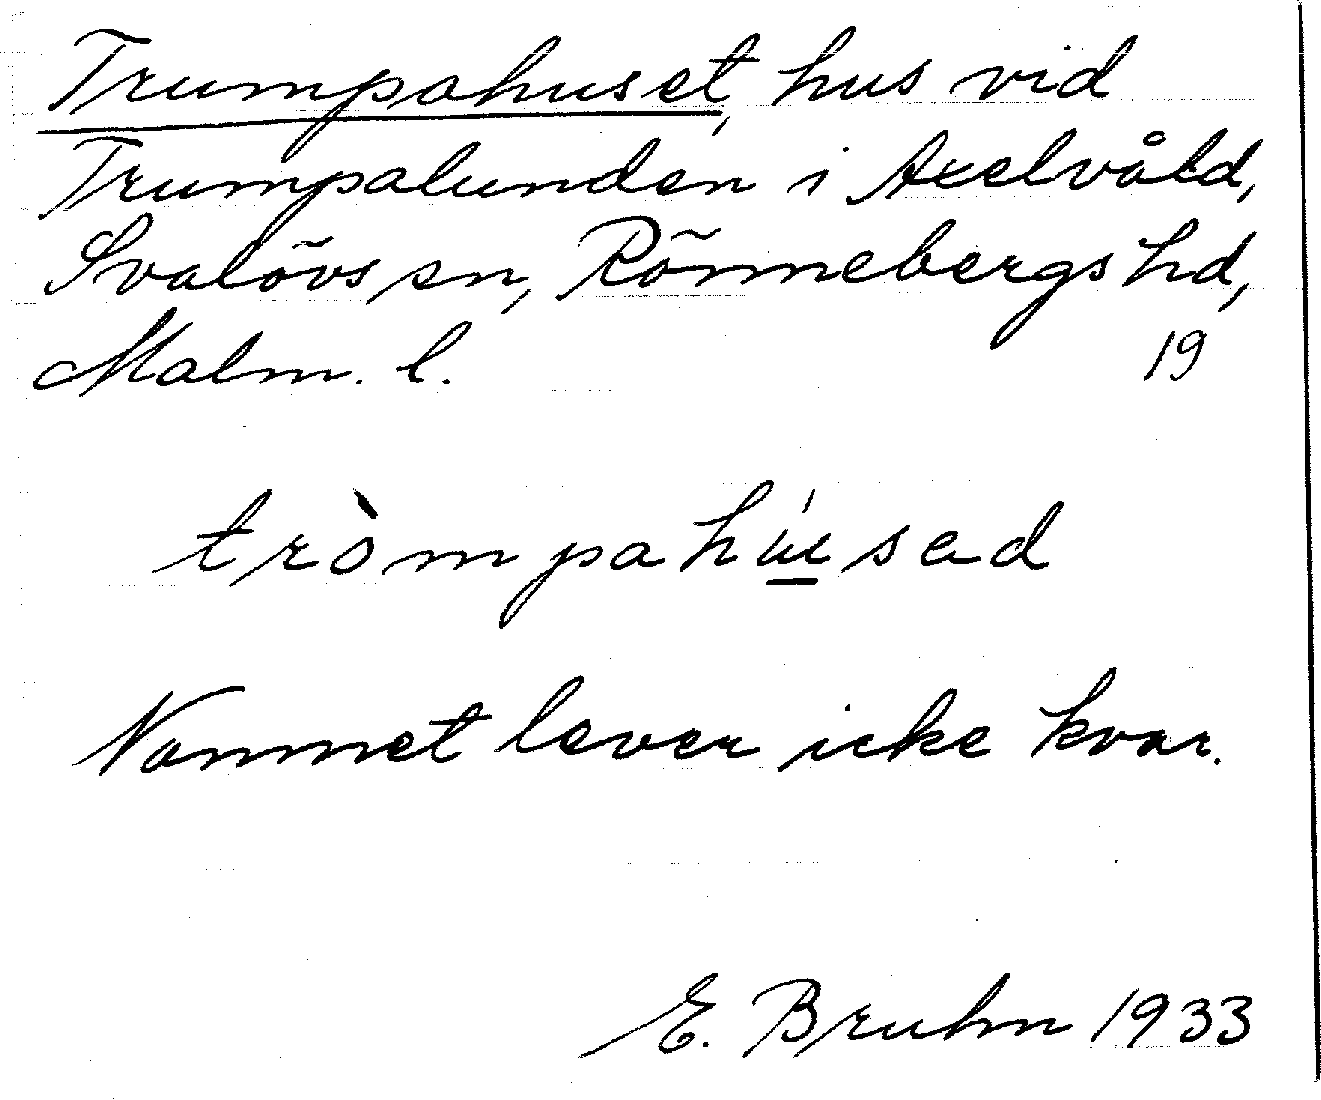 Trumpahuset, hus vid
Trumpalunden i Axelvåld,
Svalövs sn, Rönnebergs hd,
Malm. l. 19
tròmpahúsad
Namnet lever icke kvar.
E. Bruhn 1933